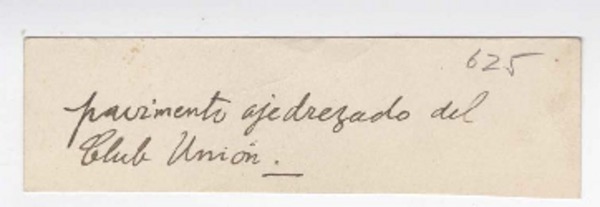 625
pavimento ajedrezado del
Club Unión.